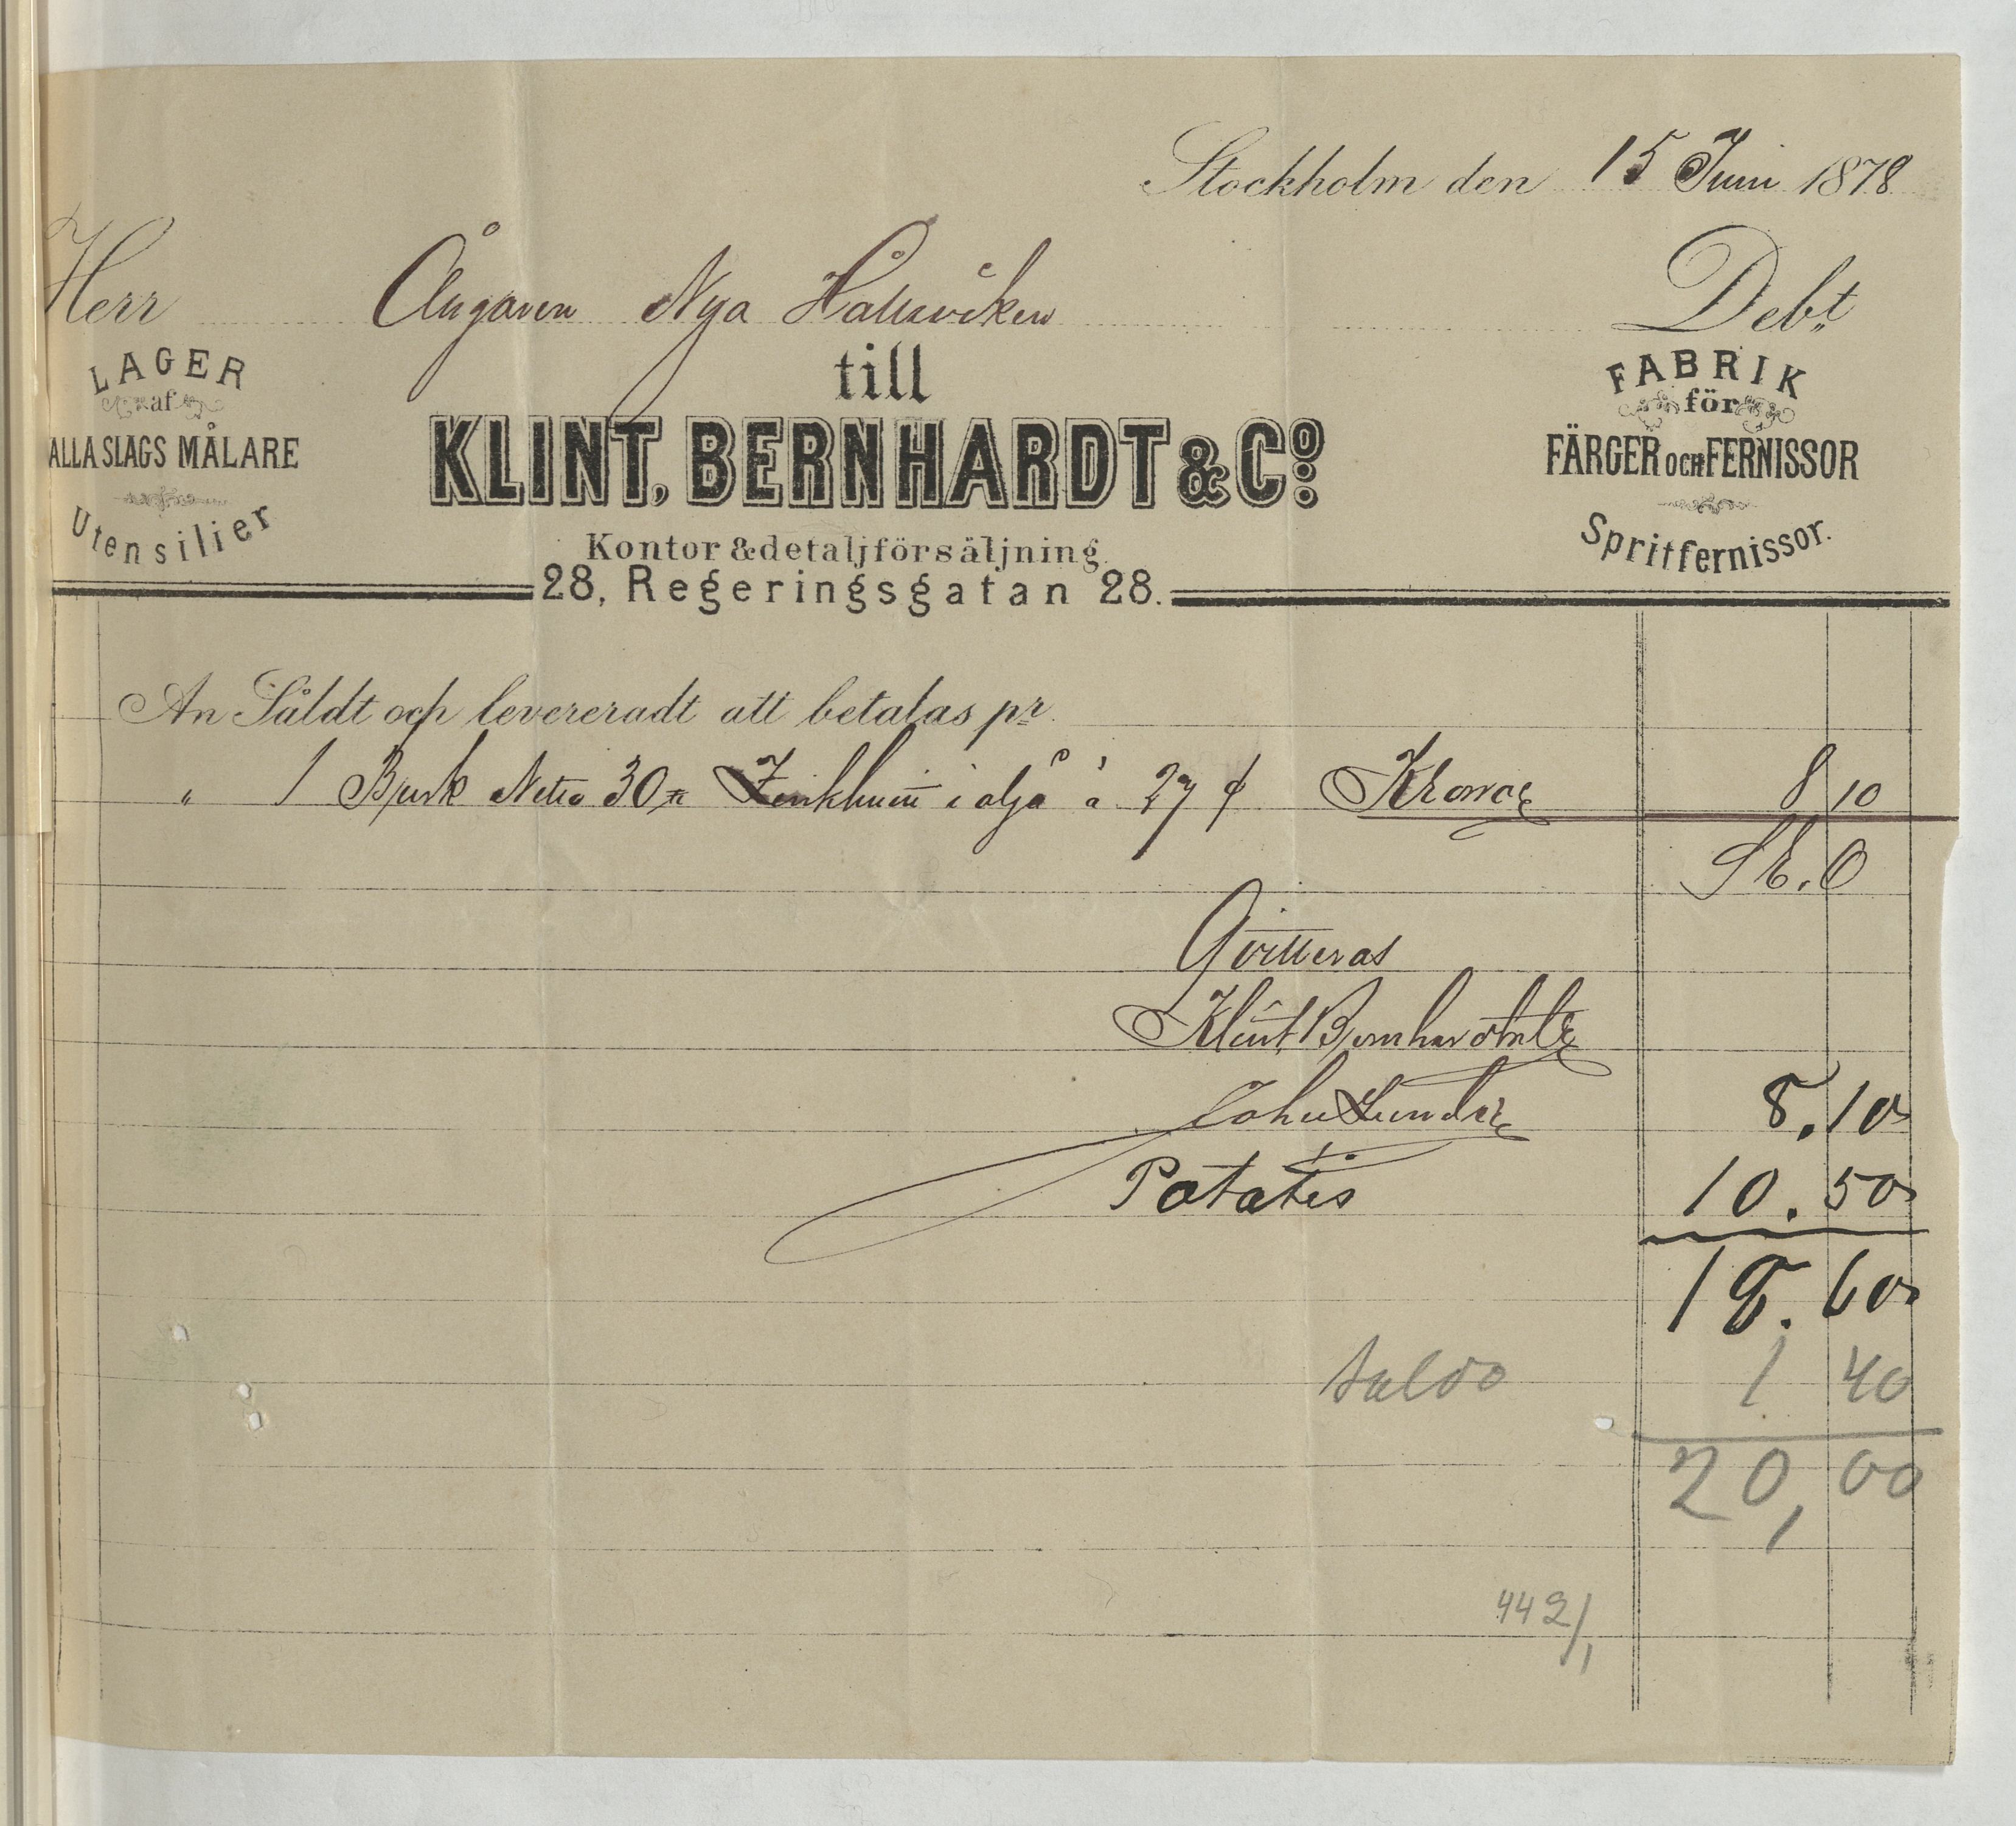 Stockholm den 15 Juni 1878
Herr Ångaren Nya Hallsviken Debt
till
LAGER
af
ALLA SLAGS MÅLARE
Utensilier
KLINT, BERNHARDT & Co
Kontor & detaljförsäljning.
28, Regeringsgatan 28.
FABRIK
för
FÄRGER OCH FERNISSOR
Spritfernissor.
An Såldt och levereradt att betalas pr
" 1 Burk Netto 30 Zinkhvitt i olja à 27 Kronor 8 10
S. E. O
Qvitteras
Klint Bernhardt & Co
John
8.10
Potatis 10.50
18.60
Saldo 1 40
20,00
442/1